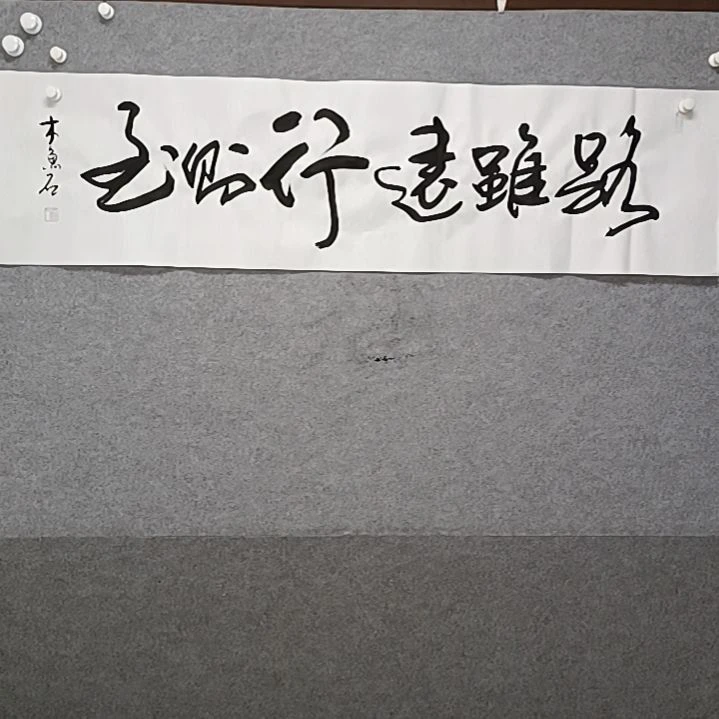 路雖遠行則至
木魚石